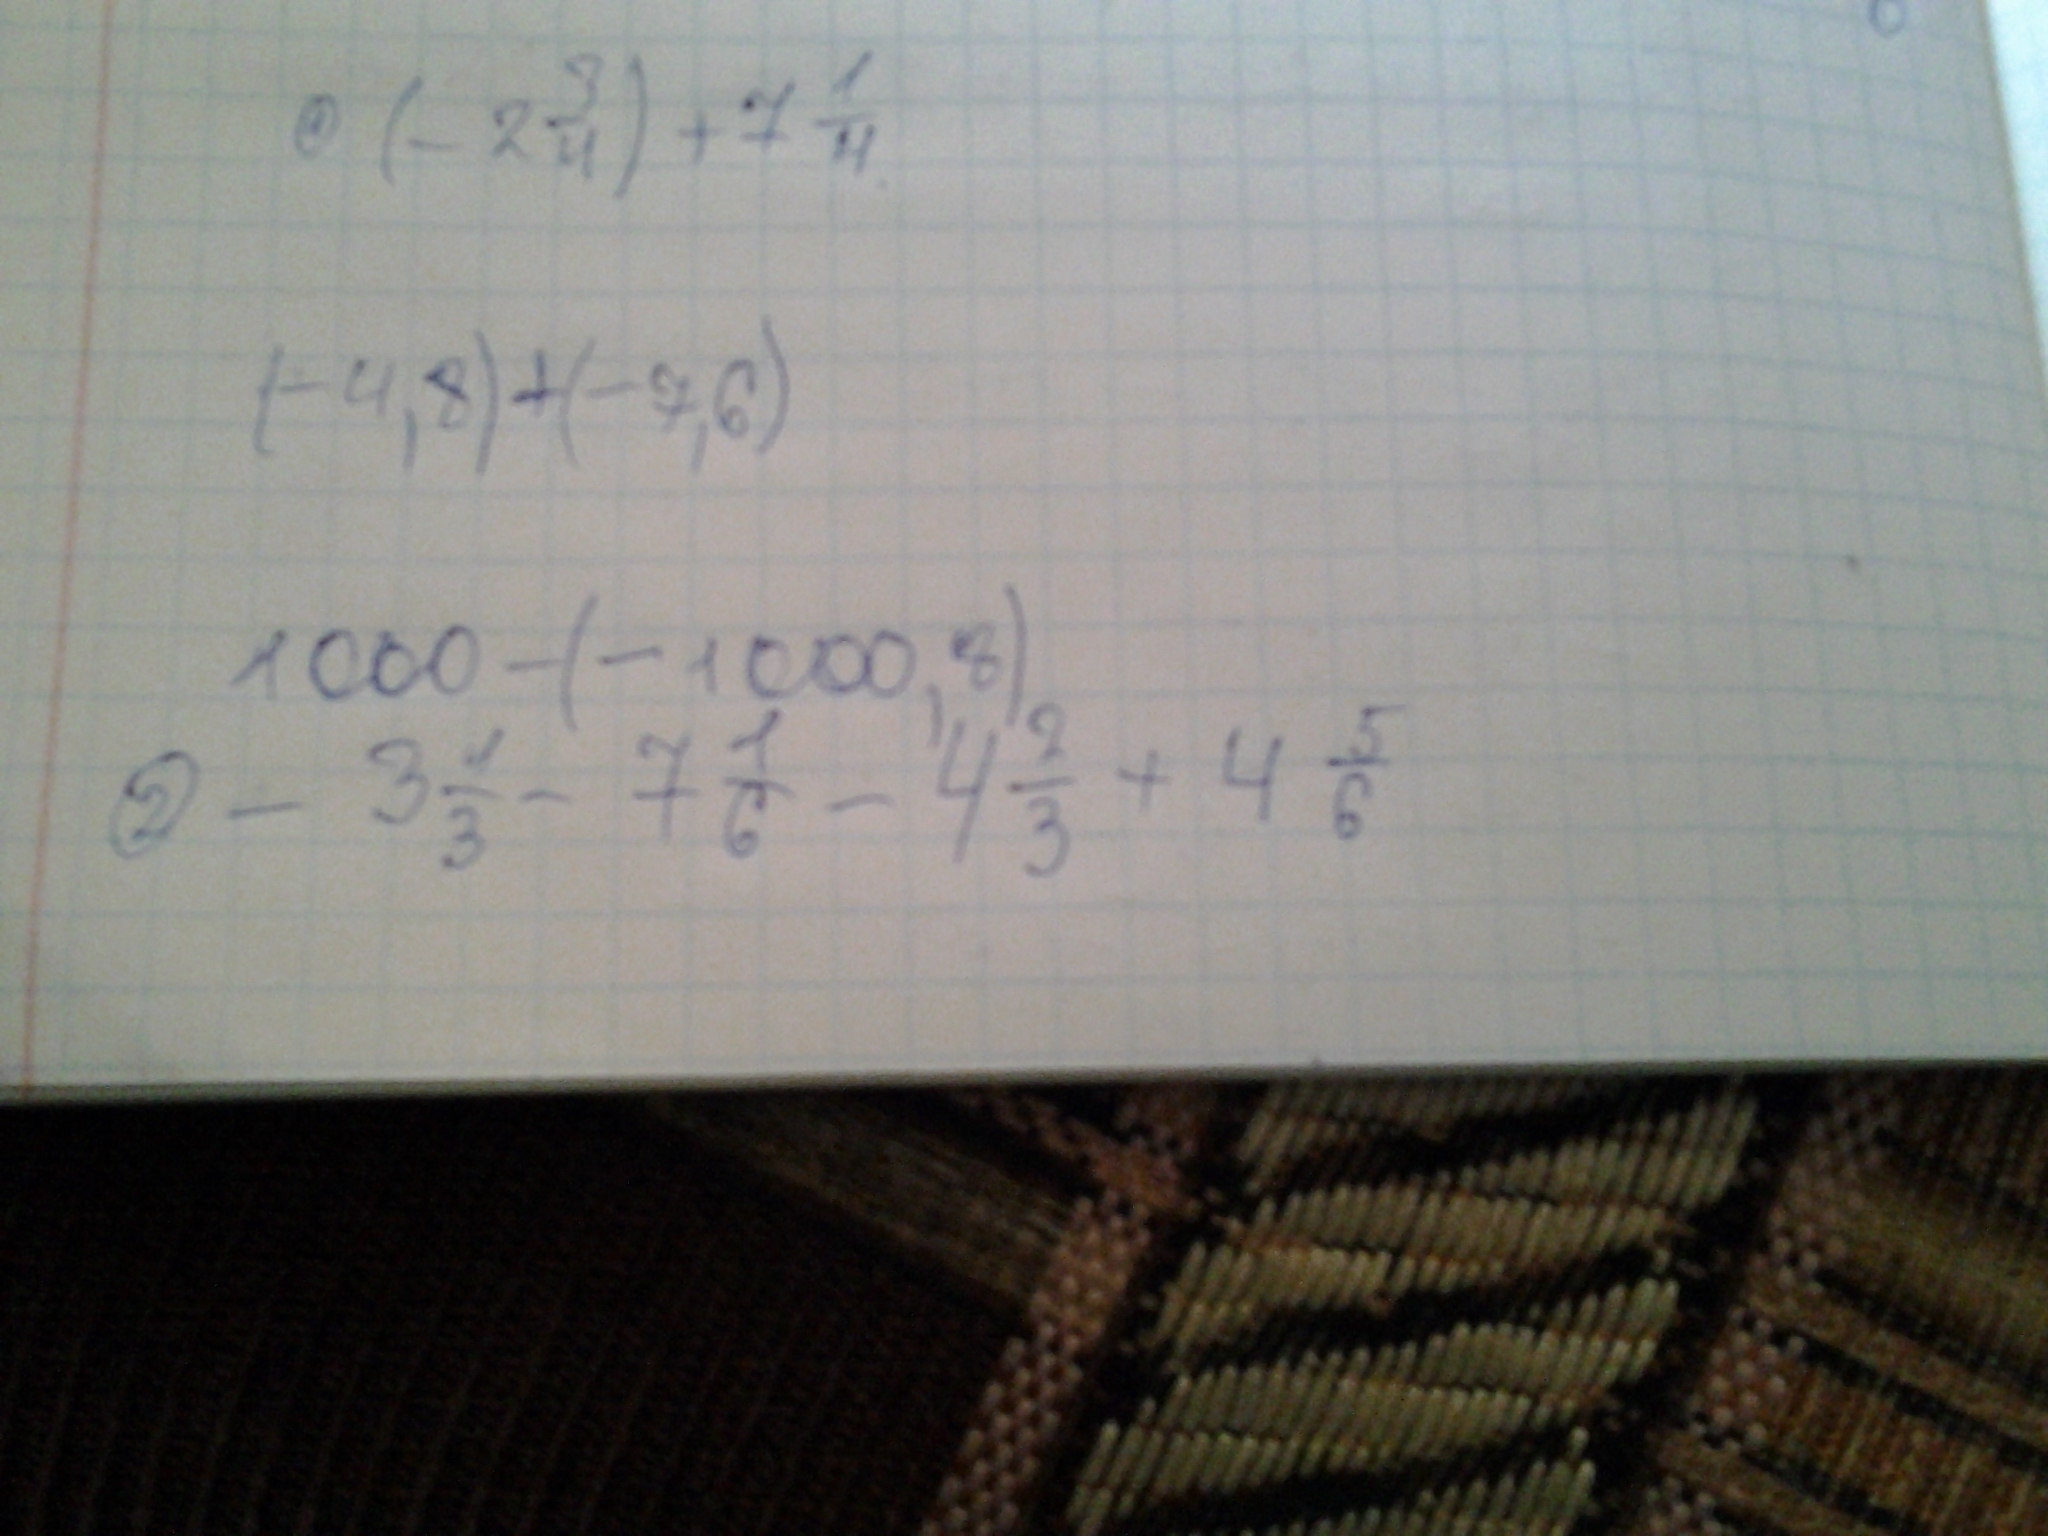 ① (- 2 3/4) + 7 1/4
(- 4,8) + (- 7,6)
1000 - (- 1000,8)
② - 3 1/3 - 7 1/6 - 4 2/3 + 4 5/6